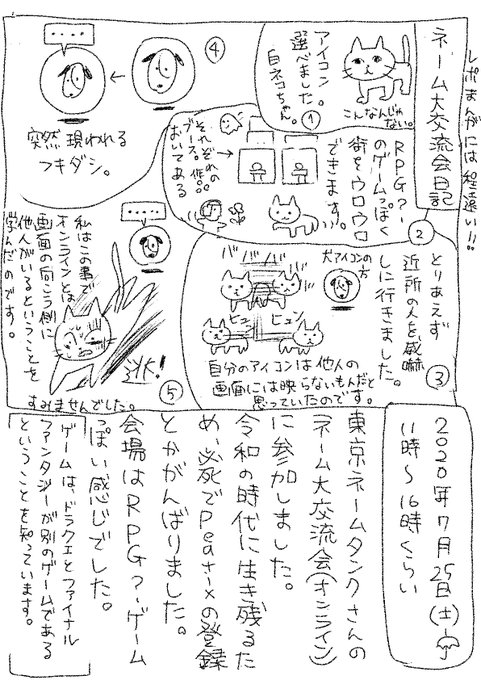 レポまんがには程遠い!!
ネーム大交流会日記
アイコン
選べました。
白ネコちゃん。
こんなんじゃ
ない。
①
RPG?!
のゲームっぽく
街をウロウロ
できます。
それぞれの
ブース。作品
おいてある
②
とりあえず
近所の人を威嚇
しに行きました。
犬アイコンの方
バババババ
ヒュン
自分のアイコンは他人の
画面には映らないもんだと
思っていたのです。
③
④
突然現われる
フキダシ。
私はこの事で
オンラインとは
画面の向こう側に
他人がいるということを
学んだのです。
すみませんでした。
⑤
2020年7月25日(土)
11時〜16時くらい
東京ネームタンクさんの
「ネーム大交流会(オンライン)」
に参加しました。
令和の時代に生き残るた
め、必死でPeatixの登録
とかがんばりました。
会場はRPG?!ゲーム
っぽい感じでした。
ゲームは、ドラクエとファイナル
ファンタジーが別のゲームである
ということを知っています。